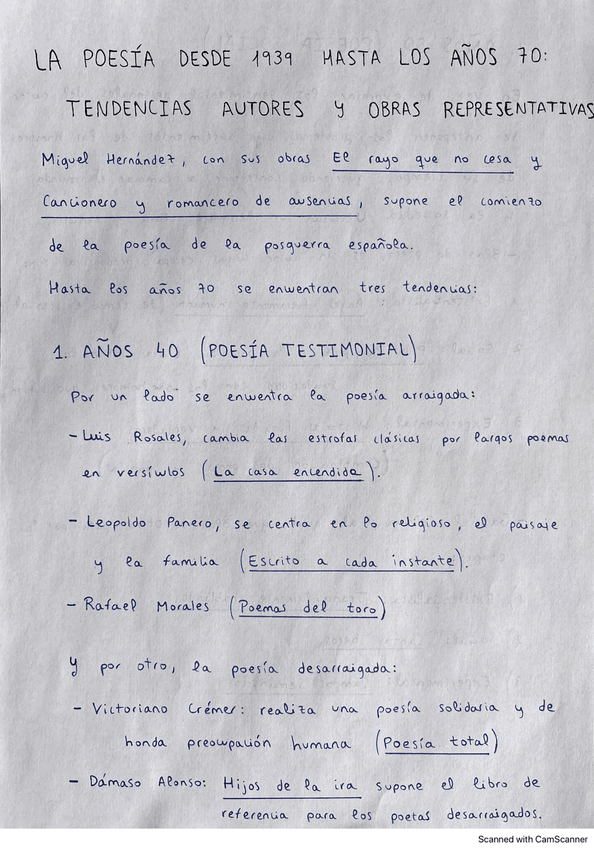 LA POESÍA DESDE 1939 HASTA LOS AÑOS 70:
TENDENCIAS AUTORES Y OBRAS REPRESENTATIVAS
Miguel Hernández, con sus obras El rayo que no cesa y
Cancionero y romancero de ausencias, supone el comienzo
de la poesía de la posguerra española.
Hasta los años 70 se encuentran tres tendencias:
1. AÑOS 40 (POESÍA TESTIMONIAL)
Por un lado se encuentra la poesía arraigada:
- Luis Rosales, cambia las estrofas clásicas por largos poemas
en versículos (La casa encendida).
- Leopoldo Panero, se centra en lo religioso, el paisaje
y la familia (Escrito a cada instante).
- Rafael Morales (Poemas del toro)
Y por otro, la poesía desarraigada:
- Victoriano Crémer: realiza una poesía solidaria y de
honda preocupación humana (Poesía total)
- Dámaso Alonso: Hijos de la ira supone el libro de
referencia para los poetas desarraigados.
Scanned with CamScanner